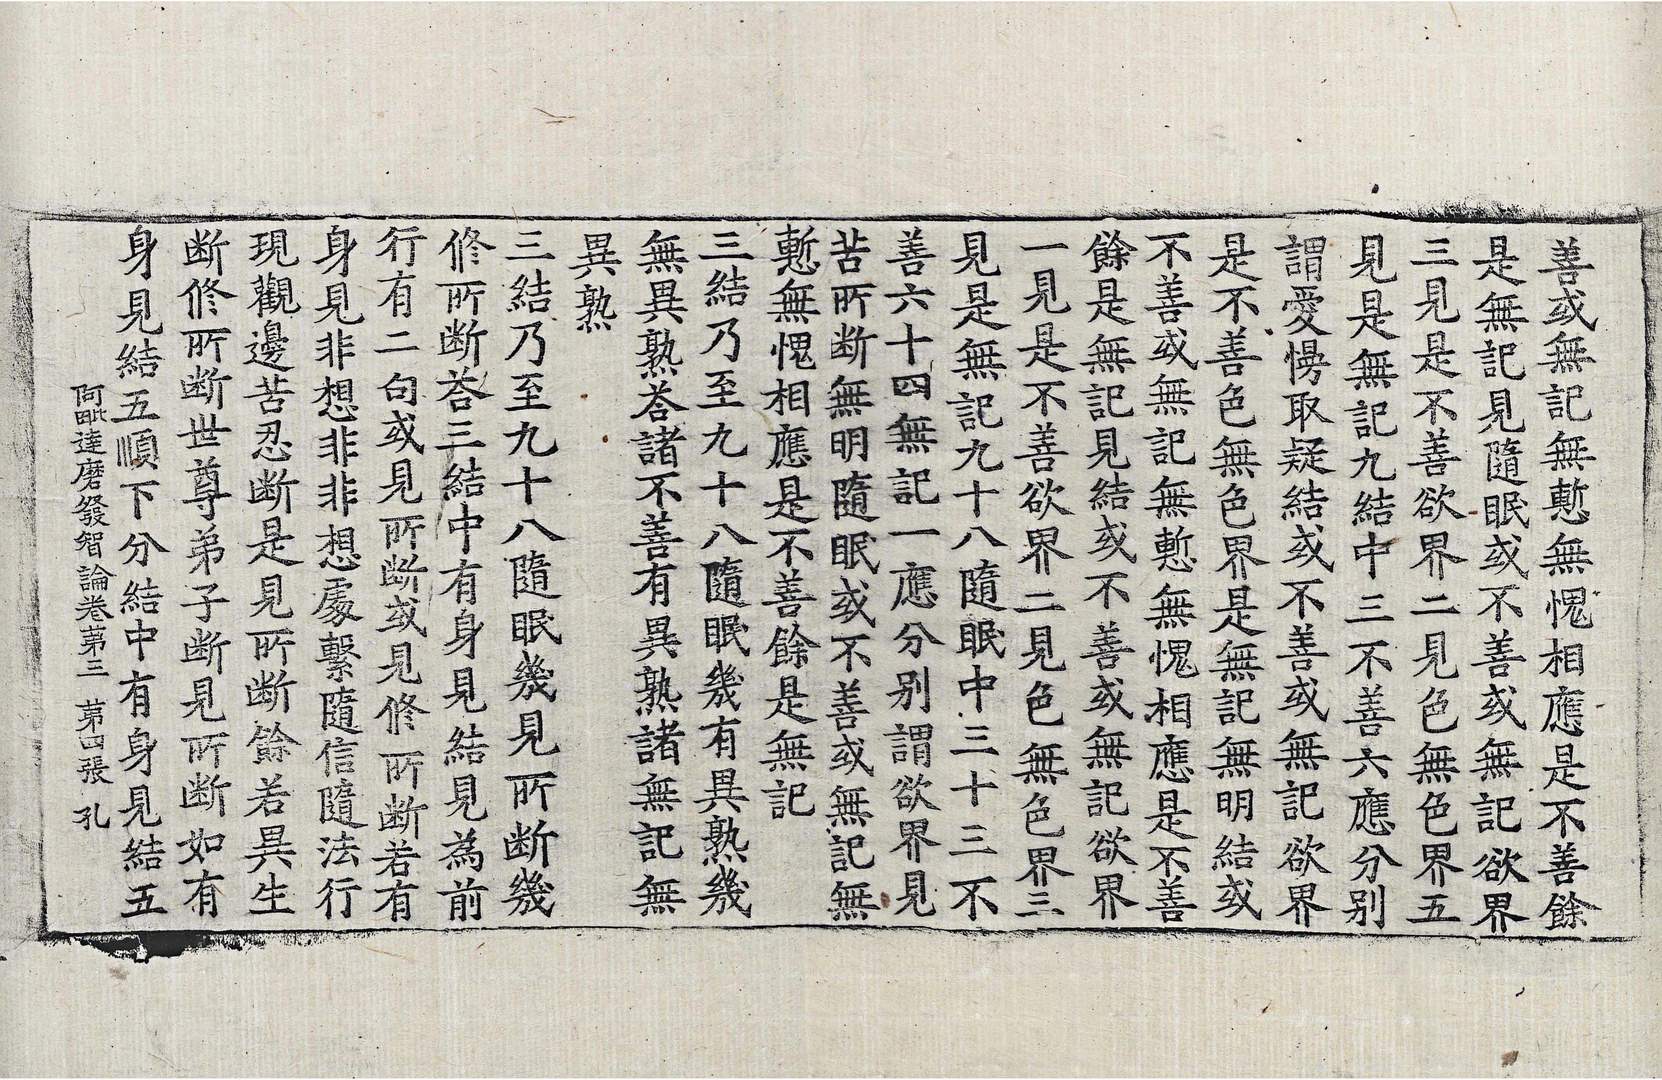 善或無記無慙無愧相應是不善餘
是無記見隨眠或不善或無記欲界
三見是不善欲界二見色無色界五
見是無記九結中三不善六應分別
謂愛慢取疑結或不善或無記欲界
是不善色無色界是無記無明結或
不善或無記無慙無愧相應是不善
餘是無記見結或不善或無記欲界
一見是不善欲界二見色無色界三
見是無記九十八隨眠中三十三不
善六十四無記一應分別謂欲界見
苦所断無明隨眠或不善或無記無
慙無愧相應是不善餘是無記
三結乃至九十八隨眠幾有異熟幾
無異熟荅諸不善有異熟諸無記無
異熟
三結乃至九十八隨眠幾見所断幾
修所断荅三結中有身見結見為前
行有二句或見所断或見修所断若有
身見非想非非想處繫隨信隨法行
現觀邊苦忍断是見所断餘若異生
断修所断世尊弟子断見所断如有
身見結五順下分結中有身見結五
阿毗達磨發智論卷苐三 苐四張 孔